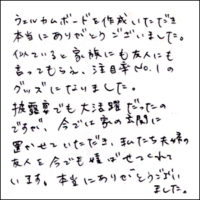 ウェルカムボードを作成いただき
本当にありがとうございました。
似ていると家族にも友人にも
言ってもらえ、注目率No.1の
グッズになりました。
披露宴でも大活躍だったの
ですが、今では家の玄関に
置かせていただき、私たち夫婦の
友人を今でも喜ばせつづれて
います。本当にありがとうござい
ました。